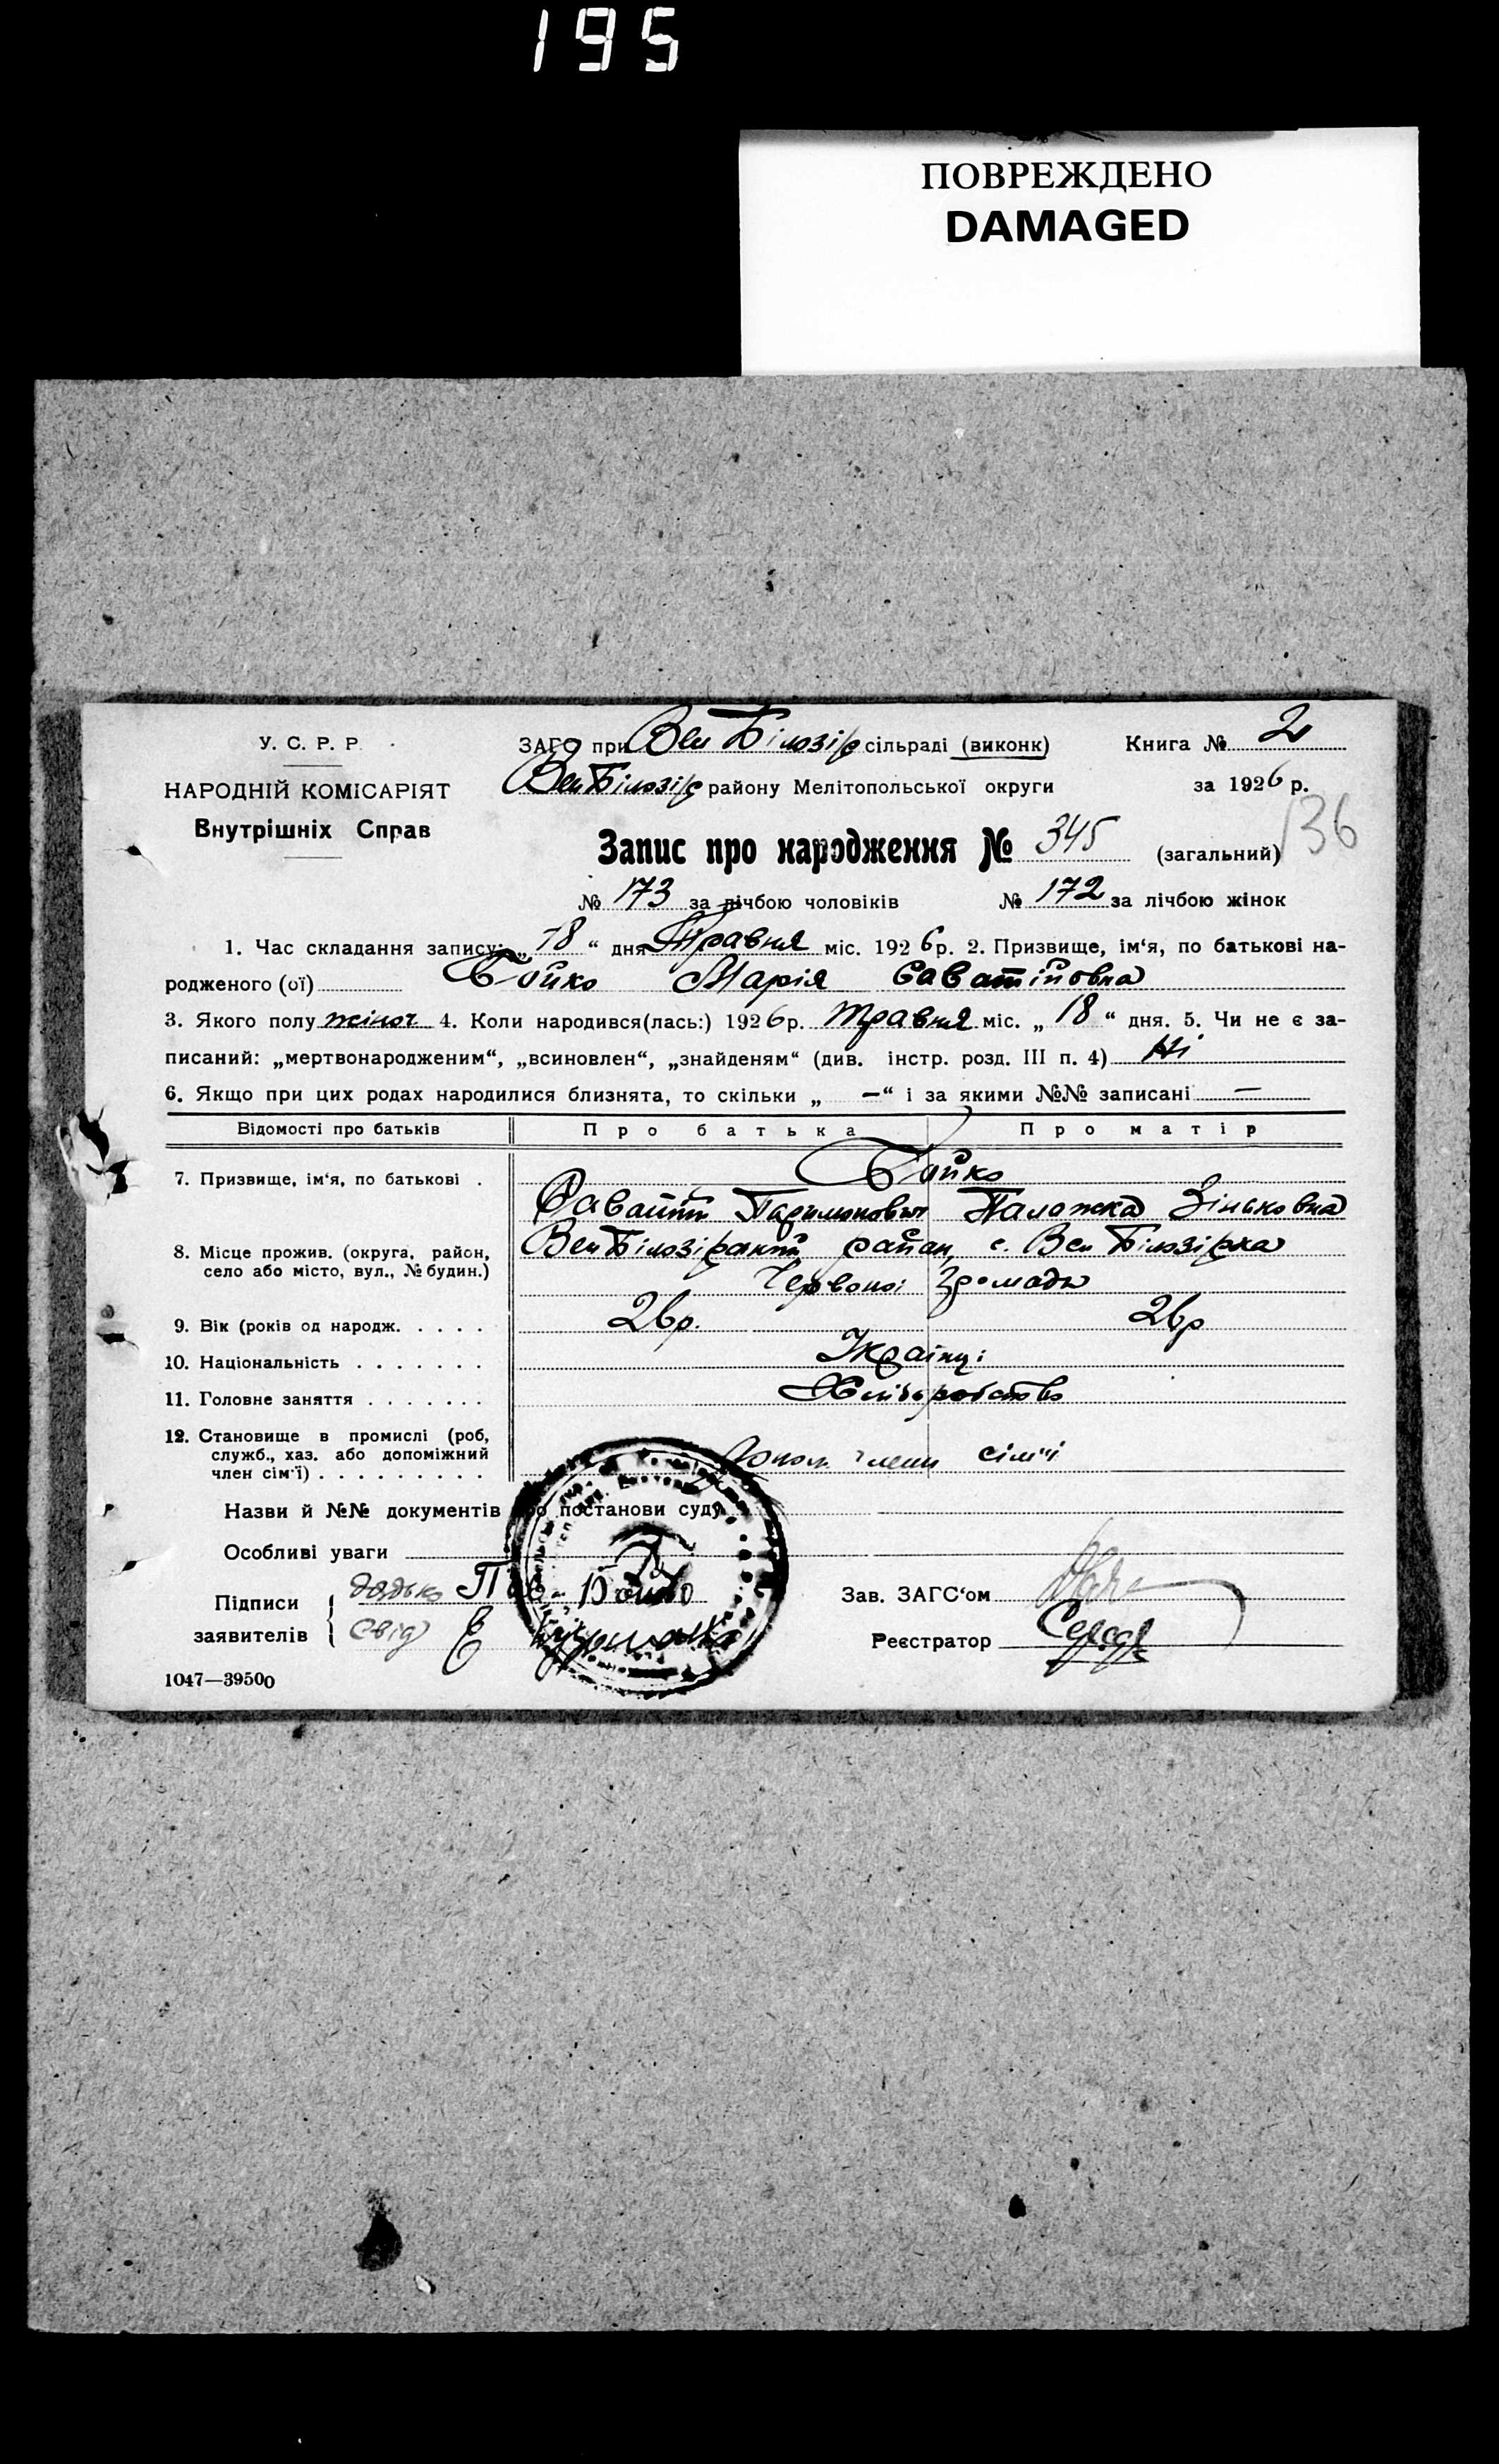 195
ПОВРЕЖДЕНО
DAMAGED
У. С. Р. Р.
НАРОДНІЙ КОМІСАРІЯТ
Внутрішніх Справ
ЗАГС при Вел Білозір сільраді (виконк)
Книга № 2
Вел Білозір району Мелітопольської округи
за 1926 р.
136
Запис про народження № 345 (загальний)
№ 173 за лічбою чоловіків № 172 за лічбою жінок
1. Час складання запису: „18“ дня Травня міс. 1926 р. 2. Призвище, ім‘я, по батькові на-
родженого (ої) Бойко Марія Саватіївна
3. Якого полу жіноч 4. Коли народився(лась:) 1926 р. Травня міс. „18“ дня. 5. Чи не є за-
писаний: „мертвонародженим“, „всиновлен“, „знайденям“ (див. інстр. розд. III п. 4) Ні
6. Якщо при цих родах народилися близнята, то скільки „ —“ і за якими №№ записані —
Відомості про батьків Про батька Про матір
7. Призвище, ім‘я, по батькові . Бойко
Саватій Парамонович Палажка Зіньковна
8. Місце прожив. (округа, район, село або місто, вул., № будин.)
Вел Білозірський район, с. Вел Білозірка
Червоної Громади
9. Вік (років од народж. . . . . 26 р. 26 р
10. Національність . . . . . . . Українці
11. Головне заняття . . . . . . . Хліборобство
12. Становище в промислі (роб,
служб., хаз. або допоміжний
член сім‘ї) . . . . . . . . . Допом члени сім'ї
Назви й №№ документів про постанови суду
Особливі уваги
Підписи
заявителів
дядько Бойко
свід Е
Зав. ЗАГС‘ом
Реєстратор
1047—39500